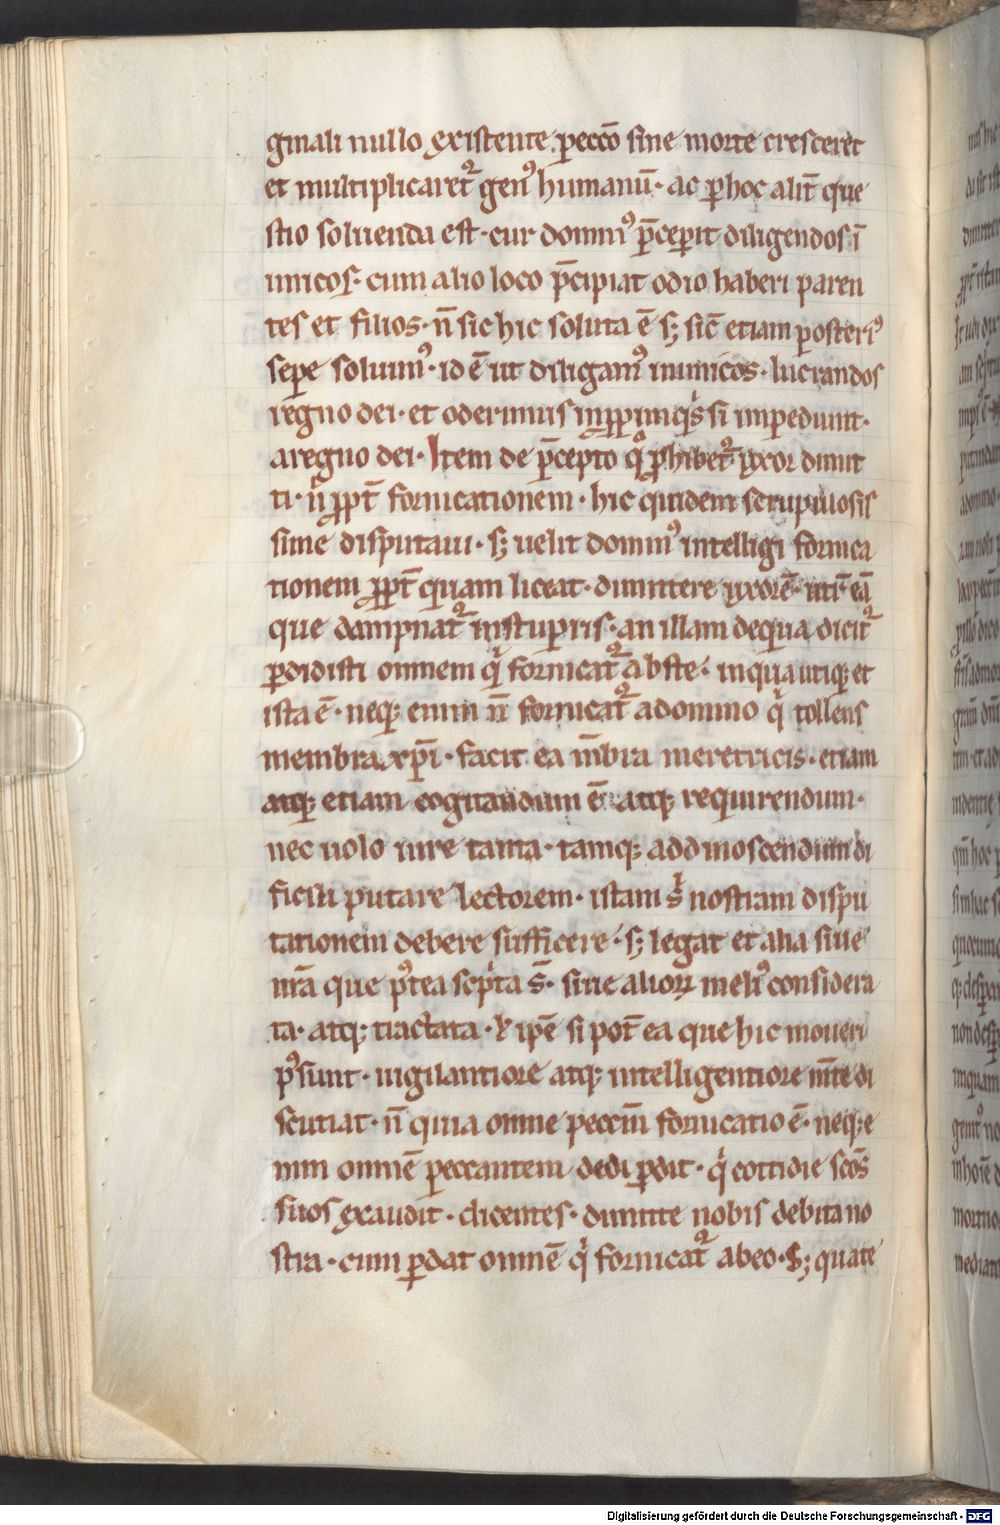 ginali nullo existente. pecco͞ sine morte cresceret
et multiplicaretᷣ genꝰ humanu͞· ac ꝑ hoc alit͞ que
stio soluenda est· cur dominꝰ p͞ceperit diligendos i͞
imicos· cum alio loco p͞cipiat odio haberi paren
tes et filios· n͞ sic hic soluta e͞ sꝫ sic͞ etiam posteriꝰ
sepe soluimꝰ· id e͞ ut diligamꝰ inimicos· lucrandos
regno dei· et oderimus in ꝓpinquis si impediunt·
a regno dei· Item de p͞cepto qͦ ꝓhibetᷣ uxor dimit
ti· n͞ ꝓpt͞ fornicationem· hic quidem scrupulosis
sime disputaui· sꝫ uelit dominꝰ intelligi fornica
tionem ꝓpt͞ quam liceat· dimittere uxore͞· utr͞ ea͞
que dampnatᷣ in stupris· an illam de qua dicitᷣ
ꝑdidisti omnem qͥ fornicatᷣ abs te· in qua utiqꝫ et
ista e͞· neqꝫ enim n͞ fornicatᷣ a domino qͥ tollens
membra xp͞i· facit ea m͞bra meretricis· etiam
atqꝫ etiam cogitandum e͞ atqꝫ requirendum·
nec uolo in re tanta· tamqꝫ ad dinoscendum di
ficili putare lectorem· istam sͥ nostram dispu
tationem debere sufficere· sꝫ legat et alia siue
nr͞a que pꝰtea scͥpta s͞· siue aliorꝝ meliꝰ considera
ta· atqꝫ tractata· ł ip͞e si pot͞ ea que hic moueri
pꝰsunt· uigilantiore atqꝫ intelligentiore m͞te di
scutiat· n͞ quia omne peccm͞ fornicatio e͞· neqꝫ e
nim omne͞ peccantem deus ꝑdit· qͥ cottidie sco͞s
suos exaudit· dicentes· dimitte nobis debita no
stra· cum ꝑdat omne͞ qͥ fornicatᷣ ab eo· Sꝫ quate
Digitalisierung gefördert durch die Deutsche Forschungsgemeinschaft - DFG